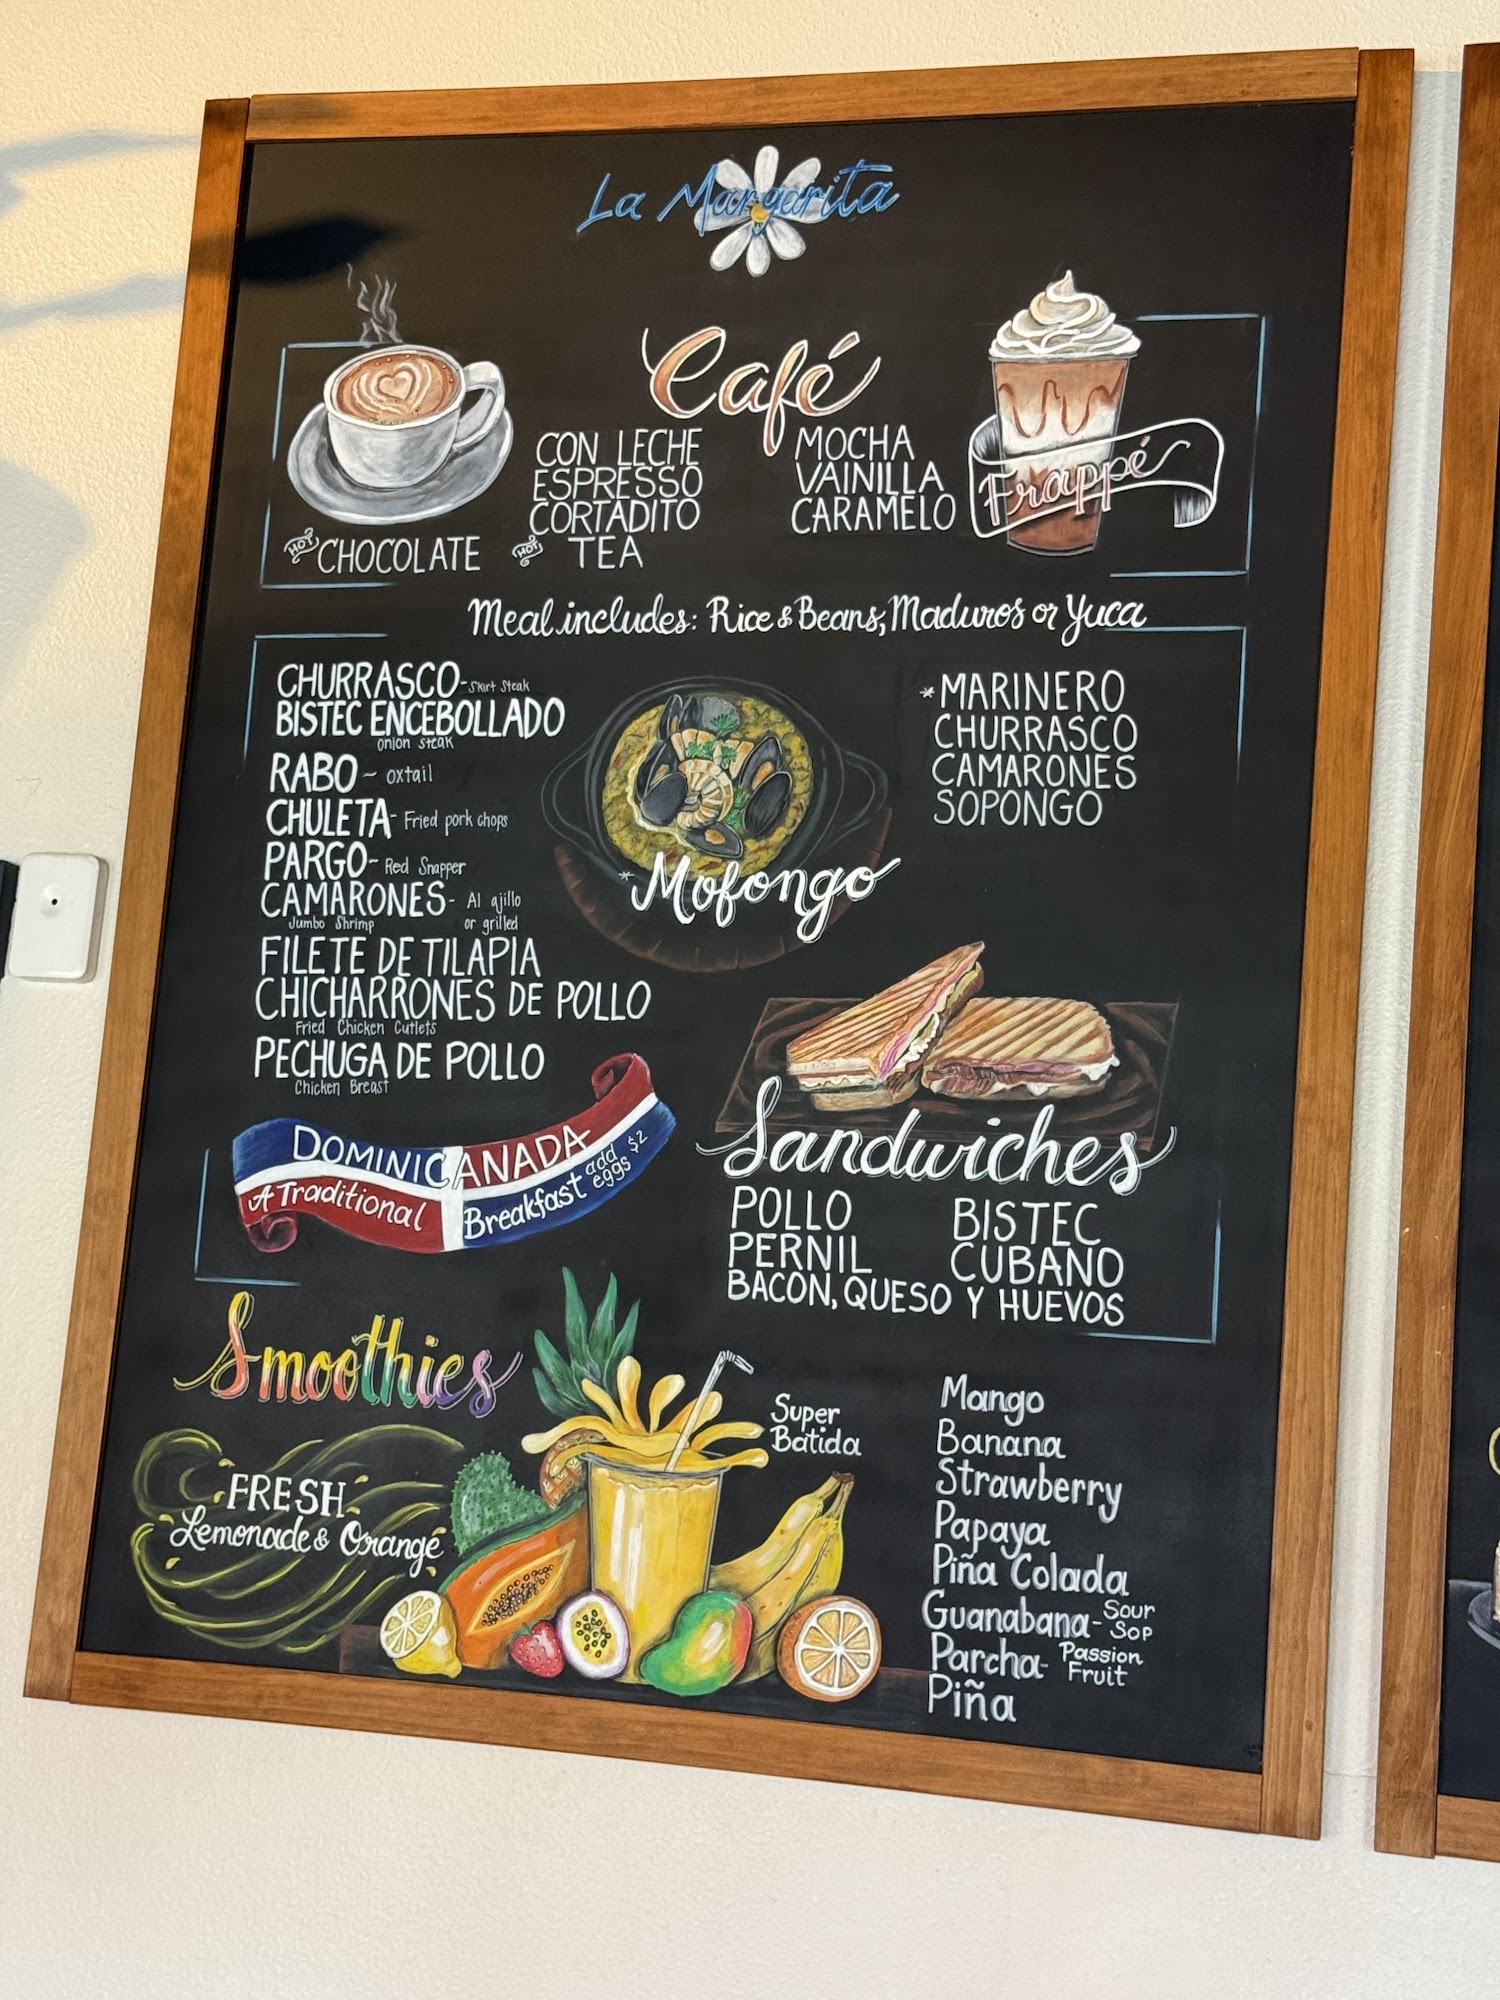 La Margarita
Café
CON LECHE
ESPRESSO
CORTADITO
HOT CHOCOLATE
HOT TEA
MOCHA
VAINILLA
CARAMELO
Frappé
Meal includes: Rice & Beans, Maduros or Yuca
CHURRASCO - Skirt Steak
BISTEC ENCEBOLLADO
onion steak
RABO ~ oxtail
CHULETA - Fried pork chops
PARGO - Red Snapper
CAMARONES - Al ajillo
Jumbo Shrimp or grilled
FILETE DE TILAPIA
CHICHARRONES DE POLLO
Fried Chicken Cutlets
PECHUGA DE POLLO
Chicken Breast
*Mofongo
*MARINERO
CHURRASCO
CAMARONES
SOPONGO
DOMINICANADA
A Traditional Breakfast add eggs $2
Sandwiches
POLLO
PERNIL
BISTEC
CUBANO
BACON, QUESO Y HUEVOS
Smoothies
FRESH
Lemonade & Orange
Super
Batida
Mango
Banana
Strawberry
Papaya
Piña Colada
Guanabana - Sour Sop
Parcha - Passion Fruit
Piña